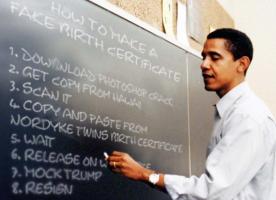 HOW TO MAKE A
FAKE BIRTH CERTIFICATE
1. DOWNLOAD PHOTOSHOP CRACK
2. GET COPY FROM HAWAII
3. SCAN IT
4. COPY AND PASTE FROM
NORDYKE TWINS BIRTH CERTIFICATE
5. WAIT
6. RELEASE ON
7. MOCK TRUMP
8. RESIGN